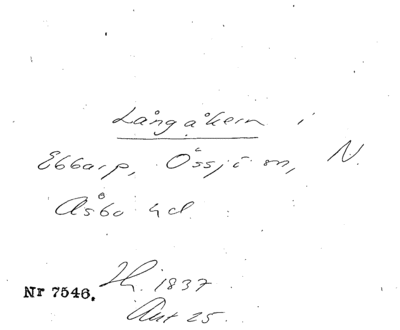 Långåkern i
Ebbarp, Össjö sn, N.
Åsbo hd.
Hi. 1837
Nr 7546.
Akt 25.